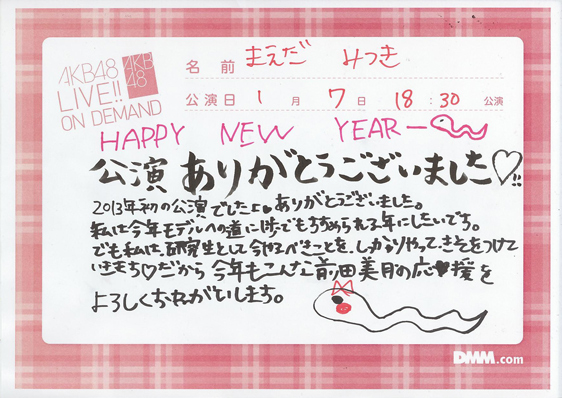 AKB48
LIVE!!
ON DEMAND
AKB
48
名前 まえだ みつき
公演日 1月 7日 18:30 公演
HAPPY NEW YEAR
公演ありがとうございました♡!!
2013年初の公演でしたよ♥ありがとうございました。
私は今年モデルへの道に1歩でもちぢめられる年にしたいです。
でも私は、研究生として今やるべきことを、しっかりやって、きそをつけて
いきます♡だから今年もこんな前田美月の応♥援を
よろしくおねがいします。
DMM.com